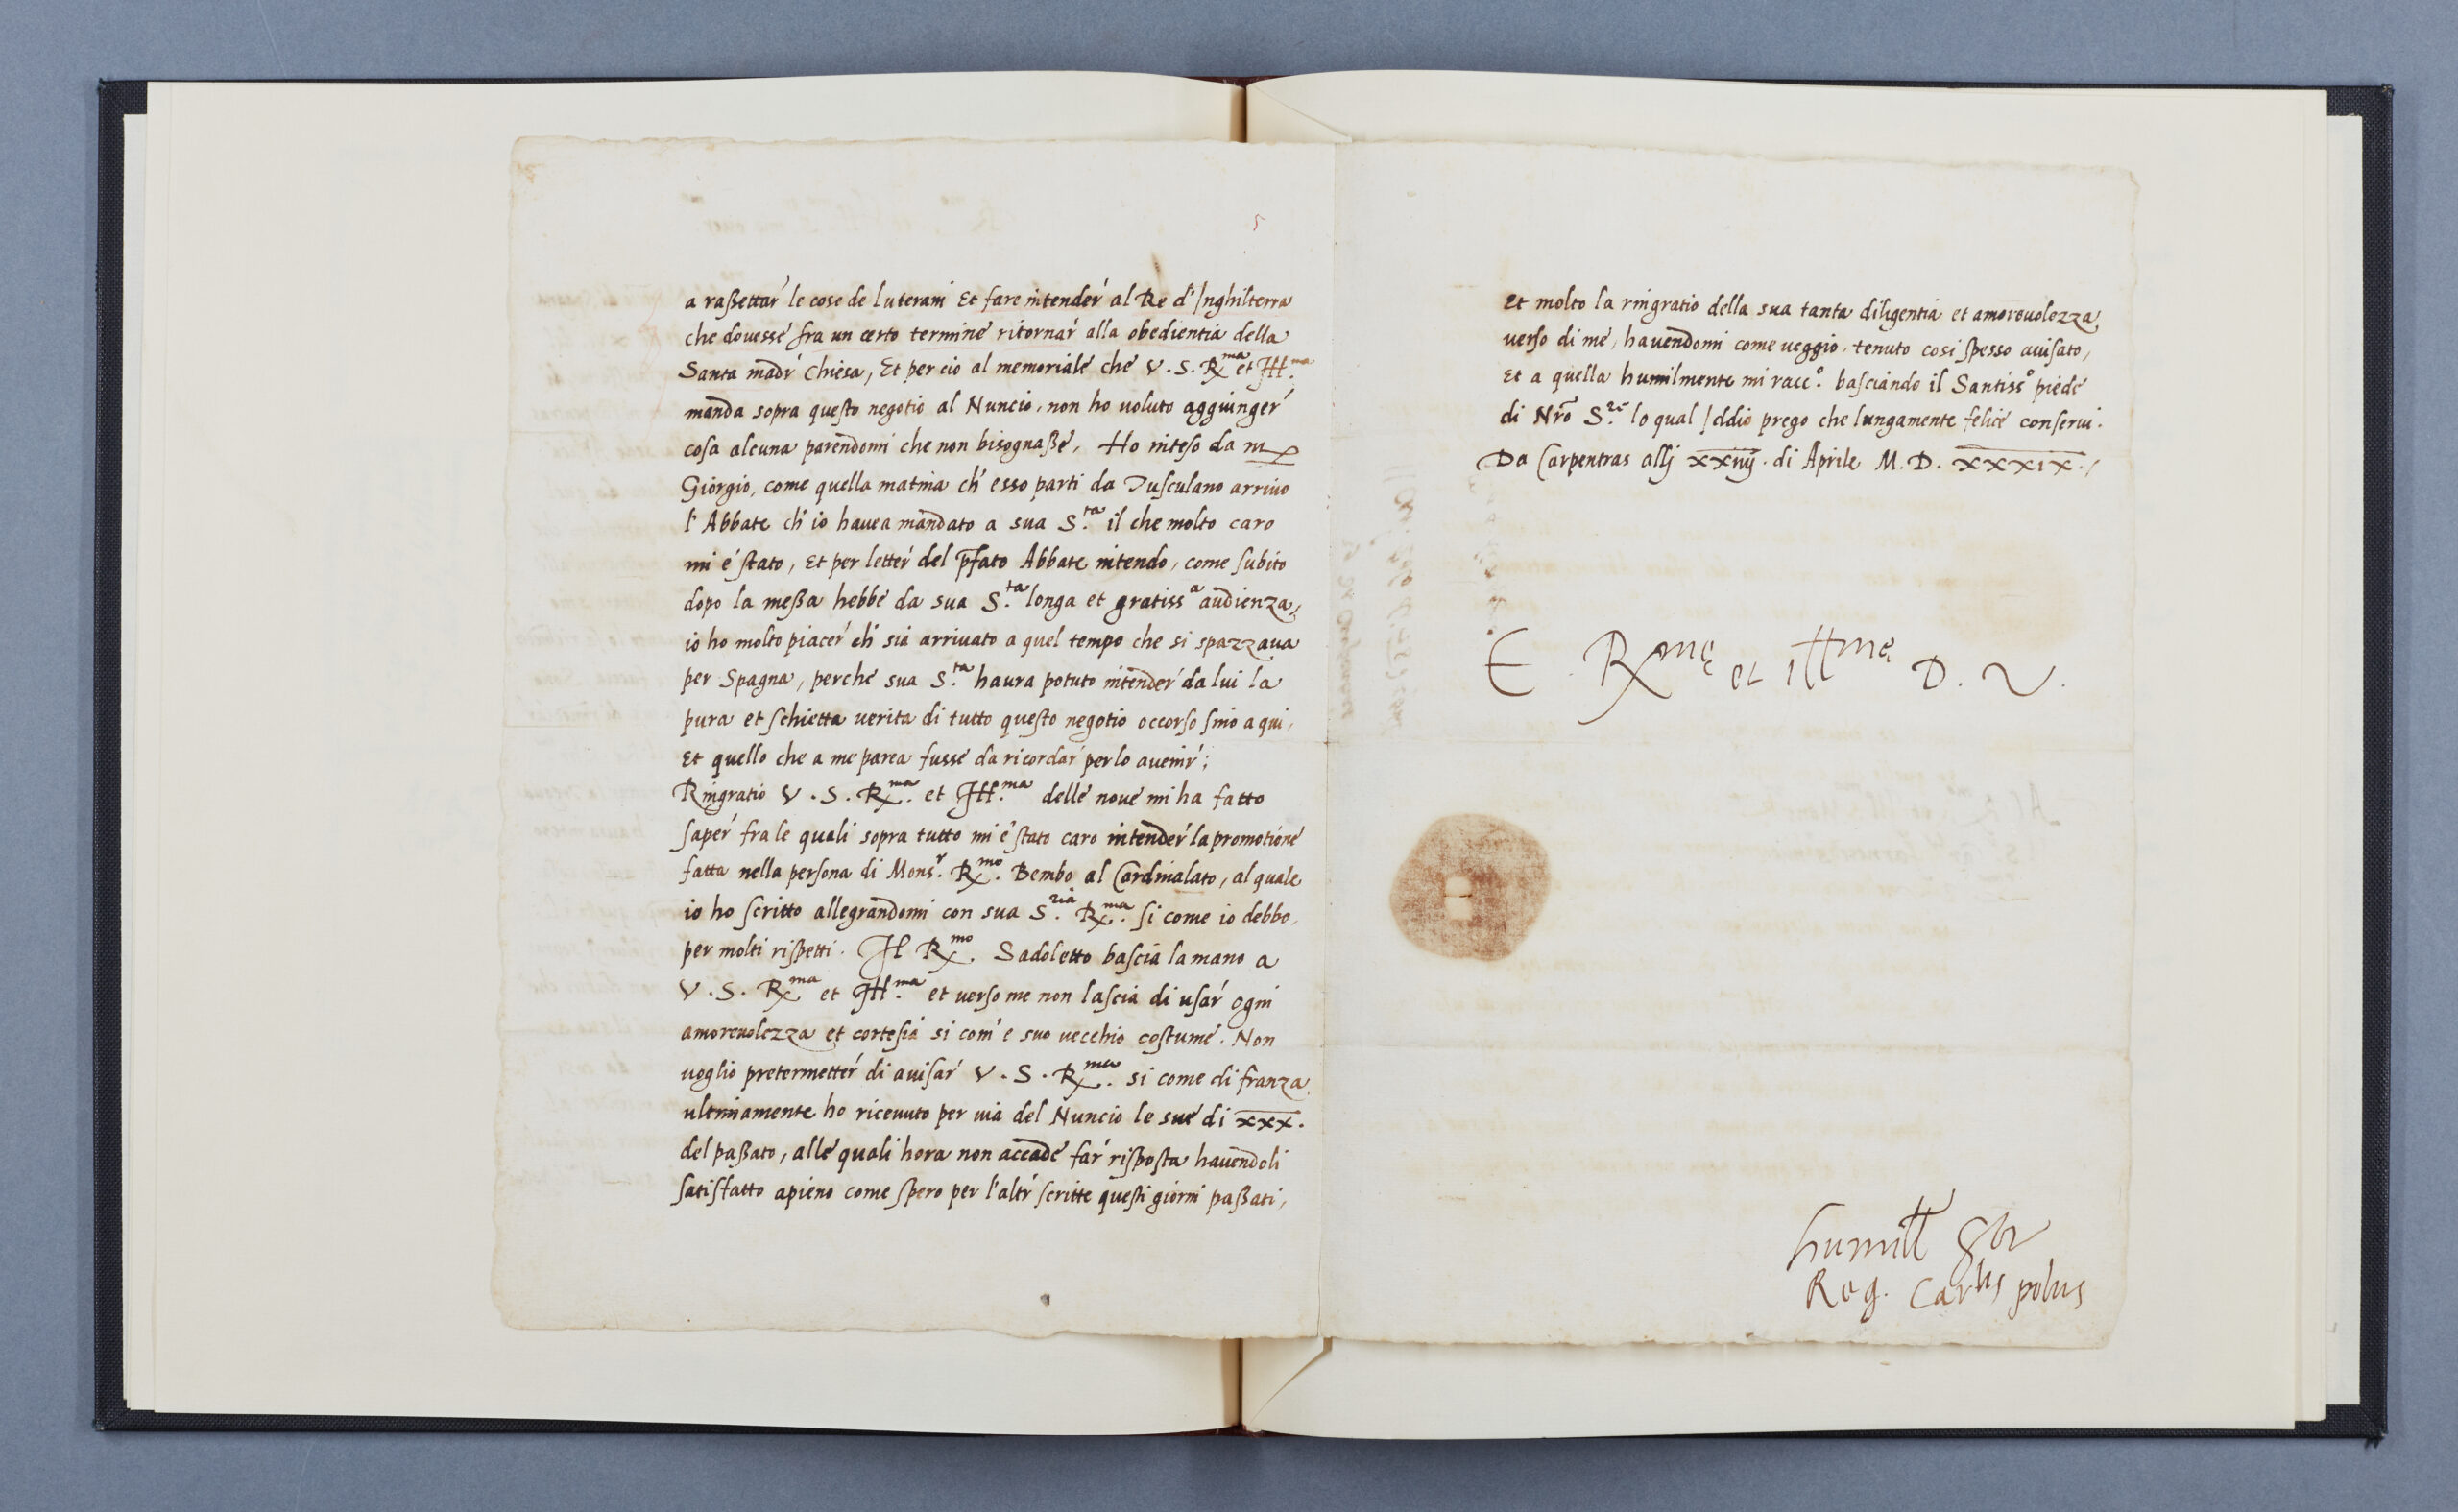 5
a raßettar' le cose de luterani Et fare intender' al Re d'Inghilterra
che douesse fra un certo termine ritornar' alla obedientia della
Santa madr' chiesa, Et per cio al memoriale che V. S. R.ma et Ill.ma
manda sopra questo negotio al Nuncio, non ho uoluto aggiunger'
cosa alcuna parendomi che non bisognaße. Ho inteso da m
Giorgio, come quella matina ch' esso parti da Tusculano arriuo
l'Abbate ch' io hauea mandato a sua S.ta il che molto caro
mi é stato, Et per letter' del p̄fato Abbate intendo, come subito
dopo la meßa hebbe da sua S.ta longa et gratiss.a audienza,
io ho molto piacer' ch' sia arriuato a quel tempo che si spazzaua
per Spagna, perche sua S.ta haura potuto intender' da lui la
pura et schietta uerita di tutto questo negotio occorso sino a qui,
Et quello che a me parea fusse da ricordar' per lo auenir';
Ringratio V. S. R.ma et Ill.ma delle noue mi ha fatto
saper' fra le quali sopra tutto mi é stato caro intender' la promotione
fatta nella persona di Mons.r R.mo Bembo al Cardinalato, al quale
io ho scritto allegrandomi con sua S.ria R.ma si come io debbo
per molti rispetti. Il R.mo Sadoletto bascia la mano a
V. S. R.ma et Ill.ma et uerso me non lascia di usar' ogni
amoreuolezza et cortesia si com' e suo uecchio costume. Non
uoglio pretermetter' di auisar' V. S. R.ma si come di franza
ultimamente ho riceuuto per uia del Nuncio le sue di xxx.
del paßato, alle quali hora non accade far' risposta hauendoli
satisfatto apieno come spero per l'altr' scritte questi giorni paßati,
Et molto la ringratio della sua tanta diligentia et amoreuolezza
uerso di me, hauendomi come ueggio, tenuto cosi spesso auisato,
Et a quella humilmente mi racc.o basciando il Santiss.o piede
di Nr̄o S.re lo qual Iddio prego che lungamente felice conserui.
Da Carpentras allj xxiiij. di Aprile M. D. xxxix./
E. R.me et Ill.me D. V.
humill S.or
Reg. Car.lis polus